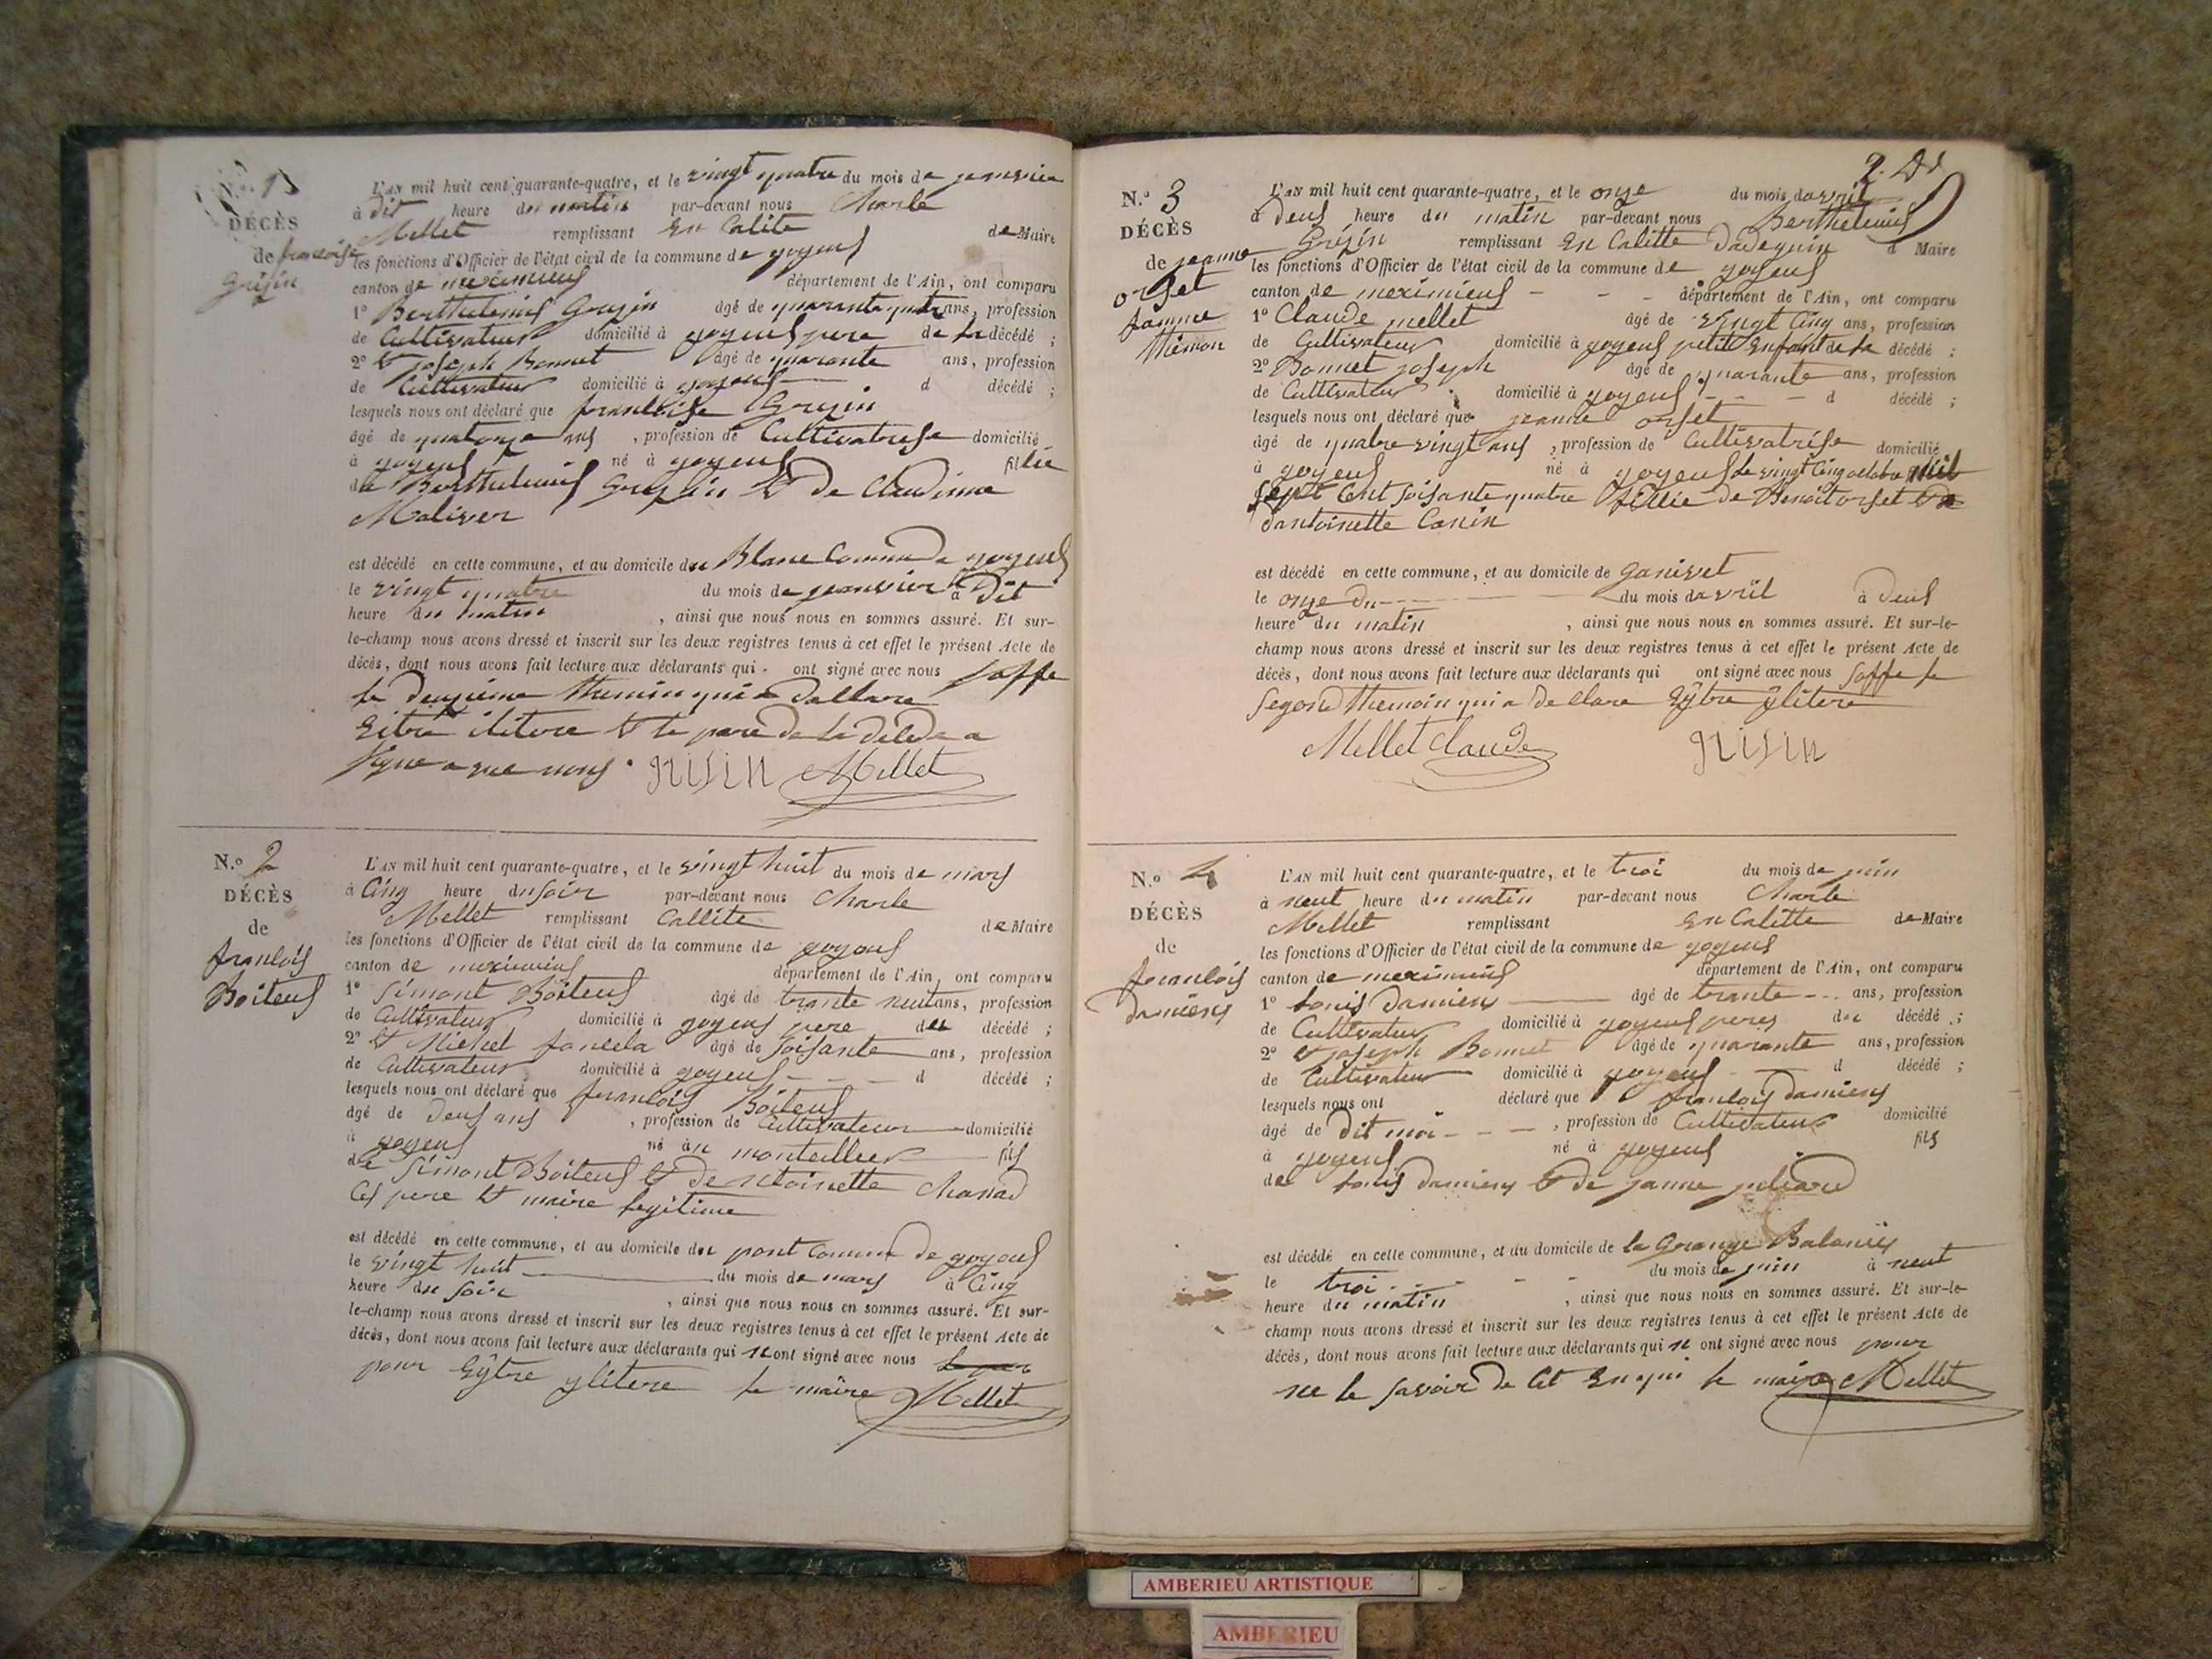 N.o 1
DÉCÈS
de francoise
Grisin
L'AN mil huit cent quarante-quatre, et le vingt quatre du mois de janvier
à dit heure du matin par-devant nous Charle
Mellet remplissant En Calite de Maire
les fonctions d'Officier de l'état civil de la commune de joyeux
canton de meximieux département de l'Ain, ont comparu
1o Berthelemis Grisin âgé de quarante quatre ans, profession
de Cultivateur domicilié à joyeux pere de la décédé ;
2o & joseph Bonnet âgé de quarante ans, profession
de Cultivateur domicilié à joyeux d décédé ;
lesquels nous ont déclaré que francoise Grisin
âgé de quatorze ans , profession de Cultivatrise domicilié
à joyeux né à joyeux fillie
de Berthelemis Grisin & de Claudinne
Maliver
est décédé en cette commune, et au domicile du Blanc Commune de joyeux
le vingt quatre du mois de janvier à dit
heure du matin , ainsi que nous nous en sommes assuré. Et sur-
le-champ nous avons dressé et inscrit sur les deux registres tenus à cet effet le présent Acte de
décès, dont nous avons fait lecture aux déclarants qui ont signé avec nous soffe
le deuxieme themoin qui a dellare
Eitre ilitere & le pere de la décédé a
signe a que nous Grisin Mellet
N.o 2
DÉCÈS
de
francois
Boiteux
L'AN mil huit cent quarante-quatre, et le vingt huit du mois de mars
à Cinq heure du soir par-devant nous Charle
Mellet remplissant Callite de Maire
les fonctions d'Officier de l'état civil de la commune de joyeux
canton de meximieux département de l'Ain, ont comparu
1o Simont Boiteux âgé de trante neuf ans, profession
de Cultivateur domicilié à joyeux pere du décédé ;
2o & Michel âgé de soisante ans, profession
de Cultivateur domicilié à joyeux d décédé ;
lesquels nous ont déclaré que francois Boiteux
âgé de deux ans , profession de Cultivateur domicilié
à joyeux né à monteillier fils
de Simont Boiteux & de ntoinette Chanad
Ces pere & maire legitime
est décédé en cette commune, et au domicile du pont Commune de joyeux
le vingt huit du mois de mars à Cinq
heure du soir , ainsi que nous nous en sommes assuré. Et sur-
le-champ nous avons dressé et inscrit sur les deux registres tenus à cet effet le présent Acte de
décès, dont nous avons fait lecture aux déclarants qui n ont signé avec nous
pour Eÿtre ylitere le maire Mellet
2.
N.o 3
DÉCÈS
de jeanne
orset
famme
Thémon
L'AN mil huit cent quarante-quatre, et le onze du mois davril
à deux heure du matin par-devant nous Berthelemis
Grisin remplissant En Calitte dadeguin d Maire
les fonctions d'Officier de l'état civil de la commune de joyeux
canton de meximieux département de l'Ain, ont comparu
1o Claude mellet âgé de vingt Cinq ans, profession
de Cultivateur domicilié à joyeux petit Enfant de la décédé ;
2o Bonnet joseph âgé de quarante ans, profession
de Cultivateur domicilié à joyeux d décédé ;
lesquels nous ont déclaré que jeanne orset
âgé de quatre vingt ans , profession de Cultivatrise domicilié
à joyeux né à joyeux le vingt Cinq octobre mil
sept Cent soisante quatre fillie de Benoit orset &
dantoinette Canin
est décédé en cette commune, et au domicile de ganivet
le onze du du mois davril à deux
heure du matin , ainsi que nous nous en sommes assuré. Et sur-le-
champ nous avons dressé et inscrit sur les deux registres tenus à cet effet le présent Acte de
décès, dont nous avons fait lecture aux déclarants qui ont signé avec nous soffe le
segond themoin qui a dellare Eÿtre ÿlitere
Mellet Claude Grisin
N.o 4
DÉCÈS
de
francois
damiens
L'AN mil huit cent quarante-quatre, et le troi du mois de juin
à neut heure du matin par-devant nous Charle
Mellet remplissant En Calitte de Maire
les fonctions d'Officier de l'état civil de la commune de joyeux
canton de meximieux département de l'Ain, ont comparu
1o louis damiens âgé de trante ans, profession
de Cultivateur domicilié à joyeux peres du décédé ;
2o & joseph Bonnet âgé de quarante ans, profession
de Cultivateur domicilié à joyeux d décédé ;
lesquels nous ont déclaré que francois damiens
âgé de dit moi , profession de Cultivateur domicilié
à joyeux né à joyeux fils
de louis damiens & de janne juliard
est décédé en cette commune, et au domicile de la Grange Balanis
le troi du mois de juin à neut
heure du matin , ainsi que nous nous en sommes assuré. Et sur-le-
champ nous avons dressé et inscrit sur les deux registres tenus à cet effet le présent Acte de
décès, dont nous avons fait lecture aux déclarants qui n ont signé avec nous pour
ne le savoir de Cet Enqui le maire Mellet
AMBERIEU ARTISTIQUE
AMBERIEU